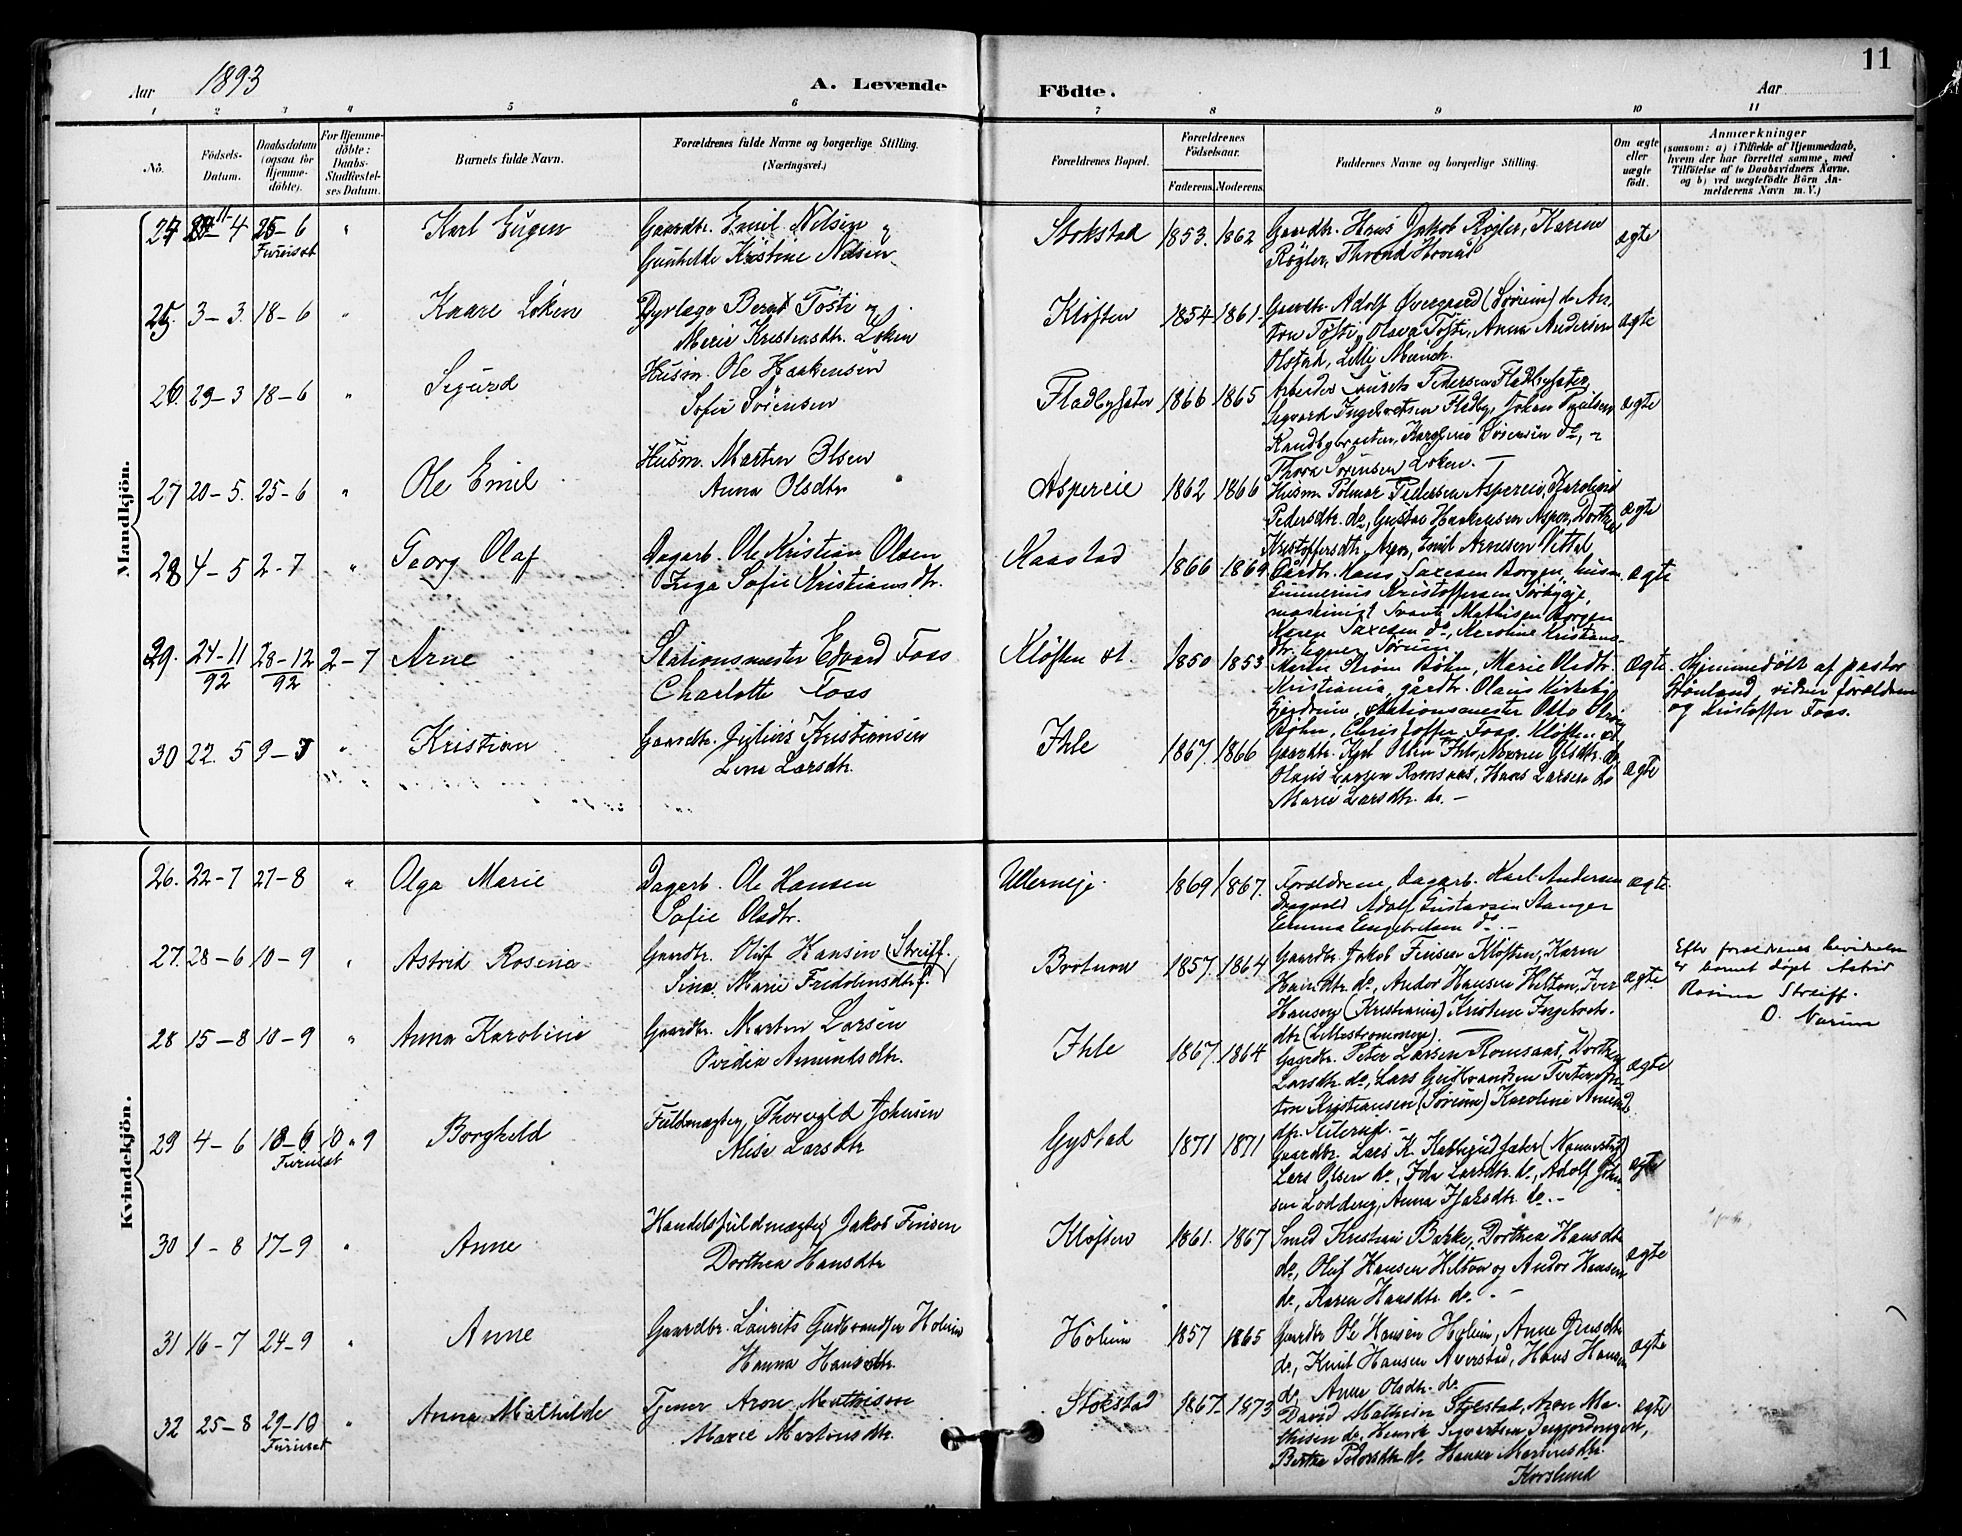 11
Aar 1893
A. Levende Födte.
Aar
1 2 3 4 5 6 7 8 9 10 11
No.
Födsels-Datum.
Daabsdatum (ogsaa for Hjemme-döbte).
For Hjemme-döbte: Daabs-Stadfæstel-ses Datum.
Barnets fulde Navn.
Forældrenes fulde Navne og borgerlige Stilling. (Næringsvei.)
Forældrenes Bopæl.
Forældrenes Födselsaar.
Faderens. Moderens.
Faddernes Navne og borgerlige Stilling.
Om ægte eller uægte födt.
Anmærkninger
(saasom: a) i Tilfælde af Hjemmedaab, hvem der har forrettet samme, med Tilföielse af to Daabsvidners Navne, og b) ved uægtefödte Börn Anmelderens Navn m. V.)
Mandkjön.
24 11-4 25-6 Furuset " Karl Eugen
Gaardbr. Emil Nilsen og
Gunhilde Kristine Nilsen
Stokstad 1853. 1862
Gaardbr. Hans Jakob Røgler, Karen
Røgler, Thrond
ægte
25. 3-3. 18-6 " Kaare Løken
Dyrlæge Bernt Tosti og
Marie Kristensdtr. Løken
Kløften 1854 1861.
Gaardbr. Adolf Øvergaard (Sørum) do An-
ton Tosti, Olava Tosti, Anna Andersen
Olstad, Lilly Munch.
ægte
26. 29-3 18-6 " Sigurd
Husm. Ole Haakensen
Sofie Sørensen
Fladbysæter 1866 1865
Arbeider Laurets Pedersen Fladbysæter,
Segvard Ingebretsen Fladby, Johan
Thora Sørensen Løken. -
ægte
27 20-5. 25-6 " Ole Emil
Husm. Marten Olsen
Anna Olsdtr
Aspereie 1862 1866
Husm. Polmar Pedersen Aspereie, Karoline
Pedersdtr. do, Gustav Haakensen Asper, Dorthea
Kristoffersdtr. Asper, Emil Arnesen
ægte
28 4-5 2-7 " Georg Olaf
Dagarb. Ole Kristian Olsen
Inga Sofie Kristiansdtr.
Kaastad 1866 1869
Gårdbr. Hans Saxesen Borgen, husm.
Kristoffersen
maskinist Svante Mathisen Borgen
Karen Saxesen do, Karoline Kristians-
dtr. Egner Sørum.
ægte
29. 24-11/92 28-12/92 2-7 Arne
Stationsmester Edvard Foss
Charlotte Foss
Kløften st. 1850 1853
Maren Strøm Bøhn, Marie Olsdtr.
Kristiania, gårdbr. Olaus Kirkeby
Gjerdrum, stationsmester Otto
Bøhn, Christoffer Foss, Kløften st
ægte
Hjemmedøbt af pastor
Grønland, vidner forældrene
og Kristoffer Foss.
30 22.5 9-7 " Kristian
Gaardbr. Julius Kristiansen
Lina Larsdtr.
Ihle 1867. 1866
Gaardbr. Karl Olsen Ihle, Maren Olsdtr. do
Olaus Larsen Romsaas, Hans Larsen do
Marie Larsdtr. do. -
ægte
Kvindekjön.
26. 22-7 27-8 " Olga Marie
Dagarb. Ole Hansen
Sofie Olsdtr.
Ullerneje. 1869 1867.
Forældrene, dagarb. Karl Andersen
Dragvold Adolf Gustavsen Stanger
Emma Engebretsen do. -
ægte.
27. 28-6 10-9 " Astrid Rosina
Gaardbr. Oluf Hansen (Streiff.)
Sina Marie Fridolinsdtr.
Brotnow 1857. 1864
Gaardbr. Jakob Finsen Kløften, Karen
Hansdtr. do, Andor Hansen Hilton, Iver
Hansen (Kristiania) Kristine Ingebrets-
dtr (Lillestrømmen).
ægte
Efter forældrenes
er barnet døpt Astrid
Rosina Streiff.
O. Narum
28 15-8 10-9 " Anna Karoline
Gaardbr. Marten Larsen
Ovidia Amundsdtr.
Ihle 1867. 1864
Gaardbr. Peter Larsen Romsaas, Dorthea
Larsdtr. do, Lars Gulbrandsen Tveter, An-
ton Kristiansen (Sørum) Karoline Amunds-
dtr.
ægte
29 4-6 18-6 Furuset 10 " 9 Borghild
Fuldmægtig Thorvald Johnsen
Mise Larsdtr
Gystad 1871 1871
Gaardbr. Lars K. (Nannestad)
Lars Olsen do, Ida Larsdtr. do, Adolf John-
sen Lodding, Anna Isaksdtr. do. -
ægte
30 1-8 17-9 " Anne
Handelsfuldmægtig Jakob Finsen
Dorthea Hansdtr
Kløften 1861. 1867
Smed Kristian Bakke, Dorthea Hansdtr
do, Oluf Hansen Hilton og Andor Hansen
do, Karen Hansdtr. do. -
ægte
31 16-7 24-9 " Anne
Gaardbr. Laurits Gudbrandsen Holum
Hanna Hansdtr.
Holum 1857 1865
Gaardbr Ole Hansen Holum, Anne Jensdtr
do, Knut Hansen Averstad, Hans Hansen
do, Anna Olsdtr. do
ægte
32 25-8 29-10 Furuset " Anna Mathilde
Tjener Aron Mathisen
Marie Martinsdtr.
Stokstad 1867. 1873
David Mathisen Stokstad, Aron Ma-
thisen do, Henrik Segvartsen
Berthe do Hanna Martinsdtr.
Korslund
ægte